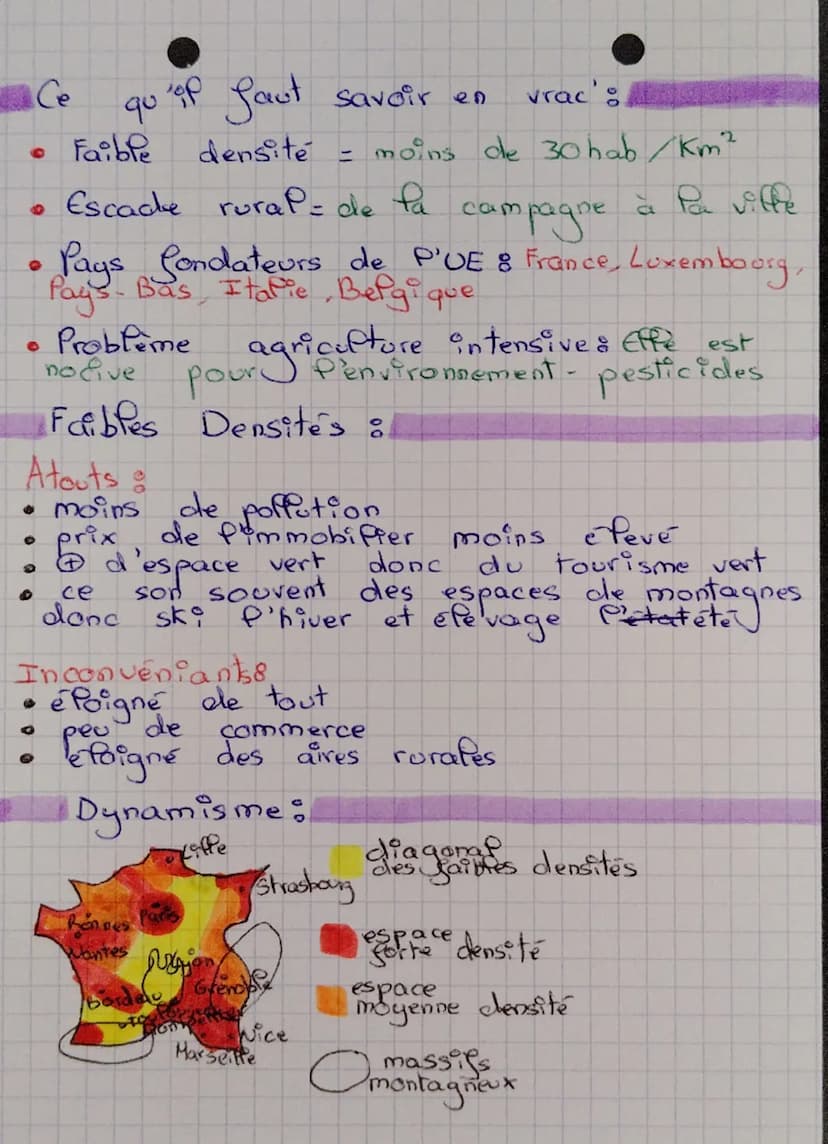 Ce qu'il faut savoir en vrac :
• Faible densité = moins de 30hab/Km²
• Escade rural = de la campagne à la ville
• Pays fondateurs de l'UE : France, Luxembourg,
Pays-Bas, Italie, Belgique
• Problème agriculture intensive : Elle est
nocive pour l'environnement - pesticides
Faibles Densités :
Atouts :
• moins de pollution
• prix de l'immobilier moins élevé
• + d'espace vert donc du tourisme vert
• ce son souvent des espaces de montagnes
donc ski l'hiver et élevage l'été
Inconvéniants :
• éloigné de tout
• peu de commerce
• éloigné des aires rurales
Dynamisme :
Lille
Strasbourg
Rennes Paris
Nantes
Lyon
Grenoble
Bordeau
Montpellier
Nice
Marseille
diagonal
des faibles densités
espace
forte densité
espace
moyenne densité
massifs
montagneux